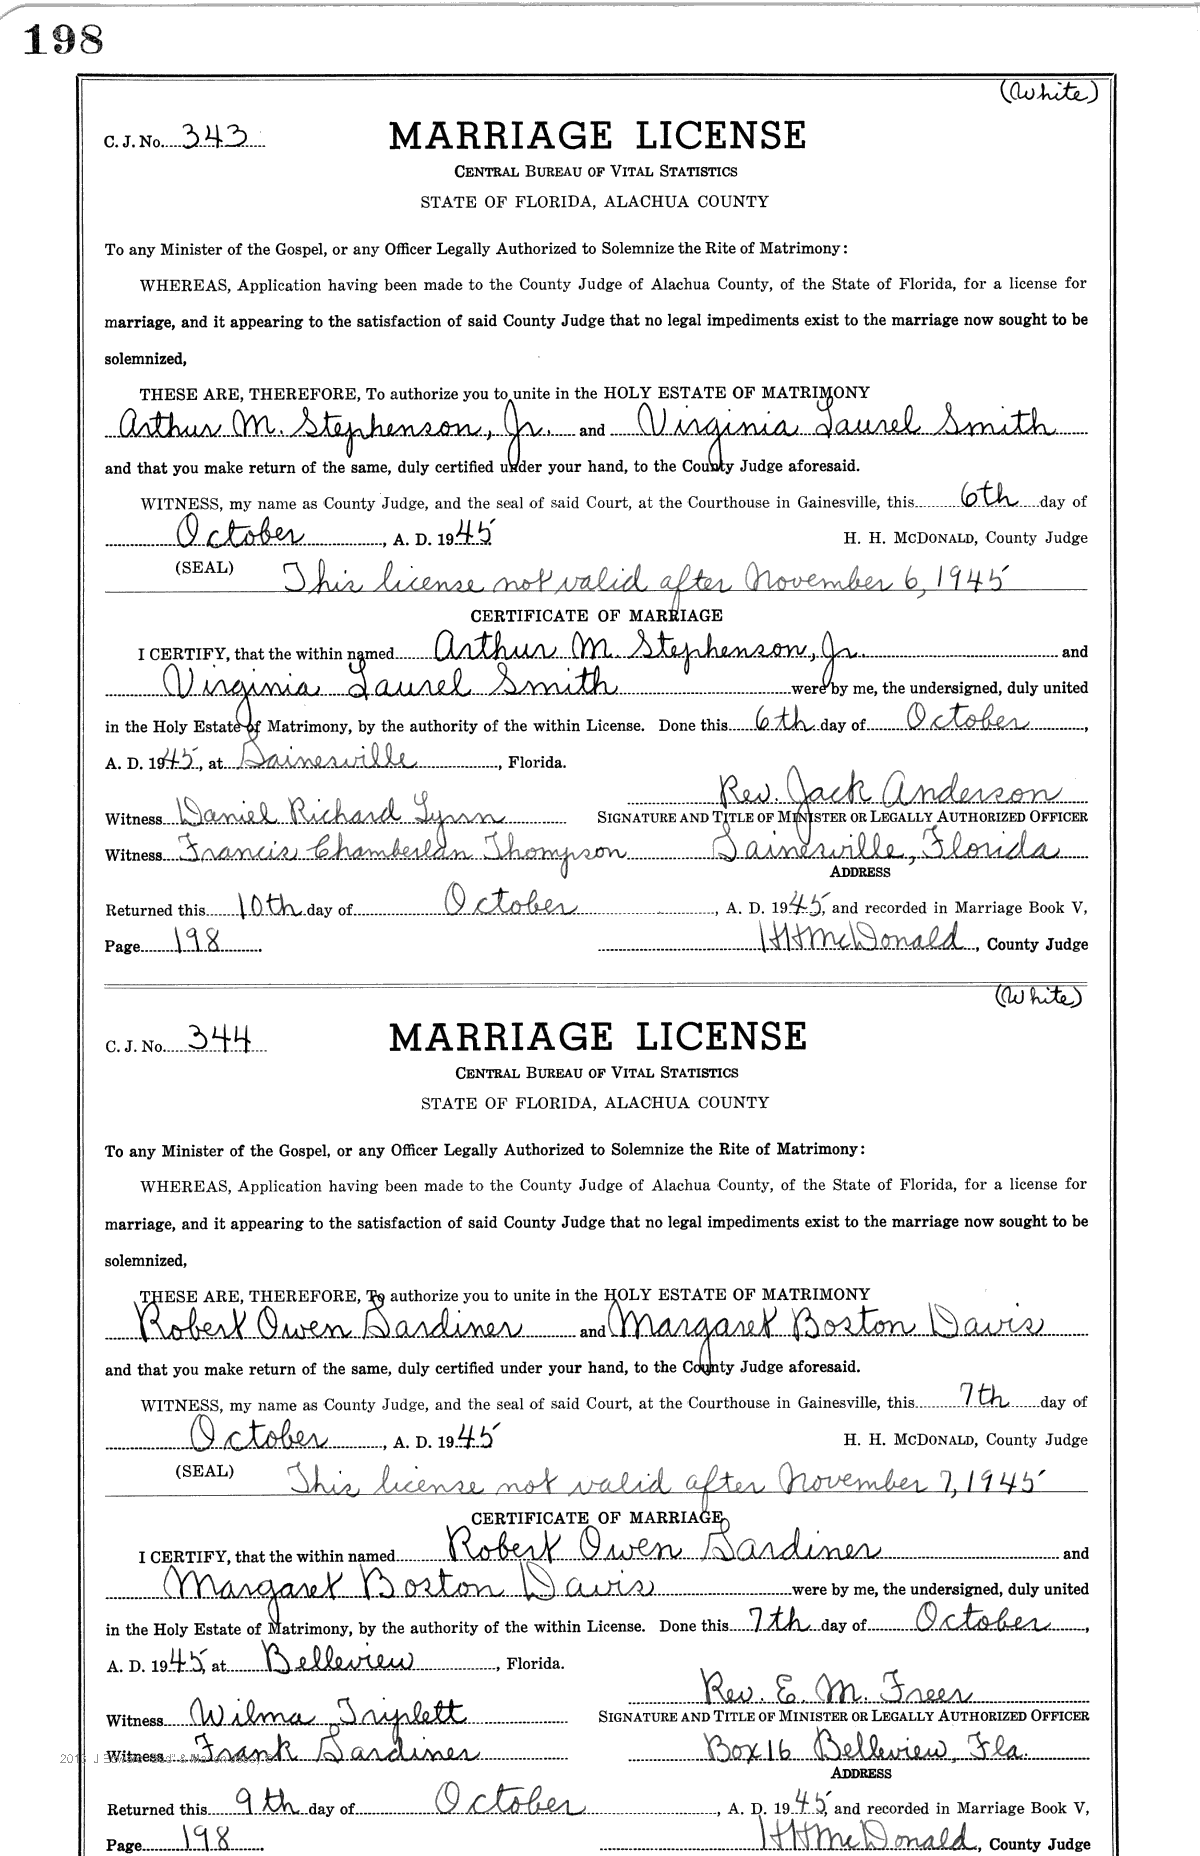 198
(White)
C. J. No. 343 MARRIAGE LICENSE
CENTRAL BUREAU OF VITAL STATISTICS
STATE OF FLORIDA, ALACHUA COUNTY
To any Minister of the Gospel, or any Officer Legally Authorized to Solemnize the Rite of Matrimony:
WHEREAS, Application having been made to the County Judge of Alachua County, of the State of Florida, for a license for
marriage, and it appearing to the satisfaction of said County Judge that no legal impediments exist to the marriage now sought to be
solemnized,
THESE ARE, THEREFORE, To authorize you to unite in the HOLY ESTATE OF MATRIMONY
Arthur M. Stephenson, Jr. and Virginia Laurel Smith
and that you make return of the same, duly certified under your hand, to the County Judge aforesaid.
WITNESS, my name as County Judge, and the seal of said Court, at the Courthouse in Gainesville, this 6th day of
October, A. D. 1945 H. H. MCDONALD, County Judge
(SEAL) This license not valid after November 6, 1945
CERTIFICATE OF MARRIAGE
I CERTIFY, that the within named Arthur M. Stephenson, Jr. and
Virginia Laurel Smith were by me, the undersigned, duly united
in the Holy Estate of Matrimony, by the authority of the within License. Done this 6th day of October,
A. D. 1945, at Gainesville, Florida.
Rev. Jack Anderson
Witness Daniel Richard Lynn SIGNATURE AND TITLE OF MINISTER OR LEGALLY AUTHORIZED OFFICER
Witness Francis Chamberlan Thompson Gainesville, Florida
ADDRESS
Returned this 10th day of October, A. D. 1945, and recorded in Marriage Book V,
Page 198 HHMcDonald, County Judge
(White)
C. J. No. 344 MARRIAGE LICENSE
CENTRAL BUREAU OF VITAL STATISTICS
STATE OF FLORIDA, ALACHUA COUNTY
To any Minister of the Gospel, or any Officer Legally Authorized to Solemnize the Rite of Matrimony:
WHEREAS, Application having been made to the County Judge of Alachua County, of the State of Florida, for a license for
marriage, and it appearing to the satisfaction of said County Judge that no legal impediments exist to the marriage now sought to be
solemnized,
THESE ARE, THEREFORE, To authorize you to unite in the HOLY ESTATE OF MATRIMONY
Robert Owen Gardiner and Margaret Boston Davis
and that you make return of the same, duly certified under your hand, to the County Judge aforesaid.
WITNESS, my name as County Judge, and the seal of said Court, at the Courthouse in Gainesville, this 7th day of
October, A. D. 1945 H. H. MCDONALD, County Judge
(SEAL) This license not valid after November 7, 1945
CERTIFICATE OF MARRIAGE
I CERTIFY, that the within named Robert Owen Gardiner and
Margaret Boston Davis were by me, the undersigned, duly united
in the Holy Estate of Matrimony, by the authority of the within License. Done this 7th day of October,
A. D. 1945, at Belleview, Florida.
Rev. E. M. Freer
Witness Wilma Triplett SIGNATURE AND TITLE OF MINISTER OR LEGALLY AUTHORIZED OFFICER
Witness Frank Gardiner Box 16 Belleview, Fla.
ADDRESS
Returned this 9th day of October, A. D. 1945, and recorded in Marriage Book V,
Page 198 HHMcDonald, County Judge